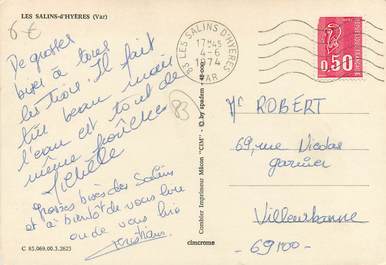 LES SALINS-d'HYÈRES (Var)
6€
De grosses
bises à tous
les trois. Il fait
très beau mais
l'eau est tout de
même fraîche
Michèle
grosses bises des Salins
et à bientôt de vous lire
ou de vous
Christiane
C 83.069.00.3.2623
Combier Imprimeur Mâcon "CIM"
cimcrome
83 LES SALINS D'HYERES
17H45
4-6
1974
VAR
83
0,50
ROBERT
69, rue Nicolas
garnier
Villeurbanne
-69100-